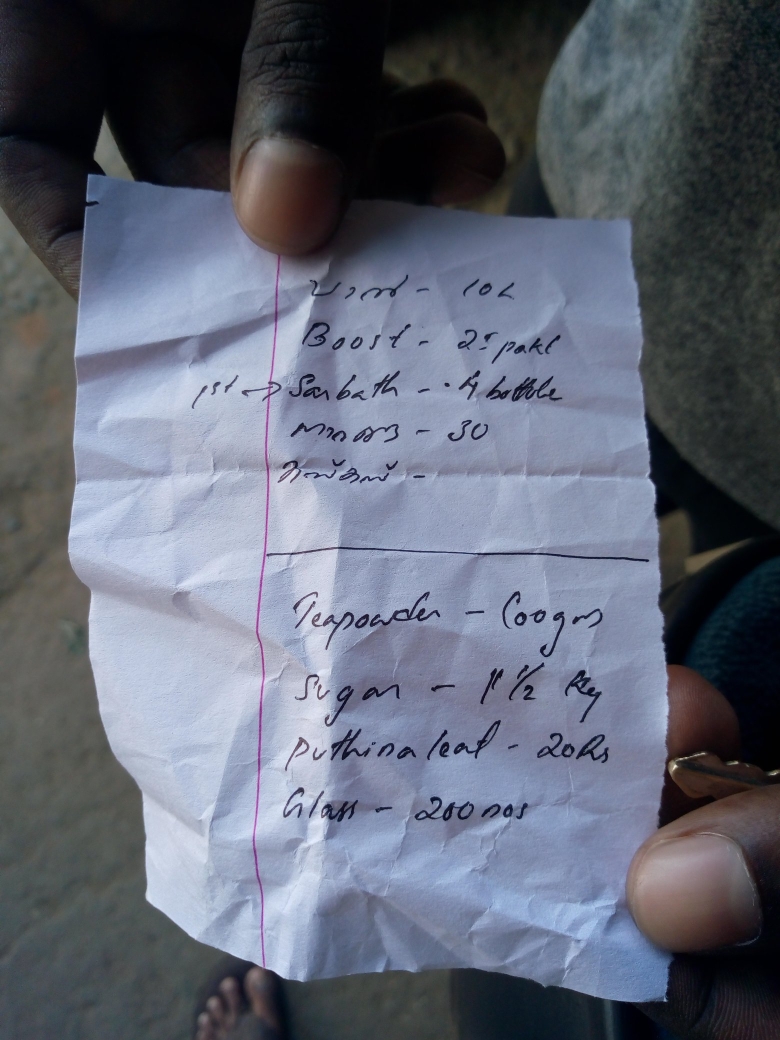 പാൽ - 10L
Boost - 25 pakt
1st → Sarbath - 4 bottle
നാരങ്ങ - 30
കസ്കസ് -
Teapowder - 600gm
Sugar - 1 1/2 Kg
Puthina leaf - 20Rs
Glass - 200nos